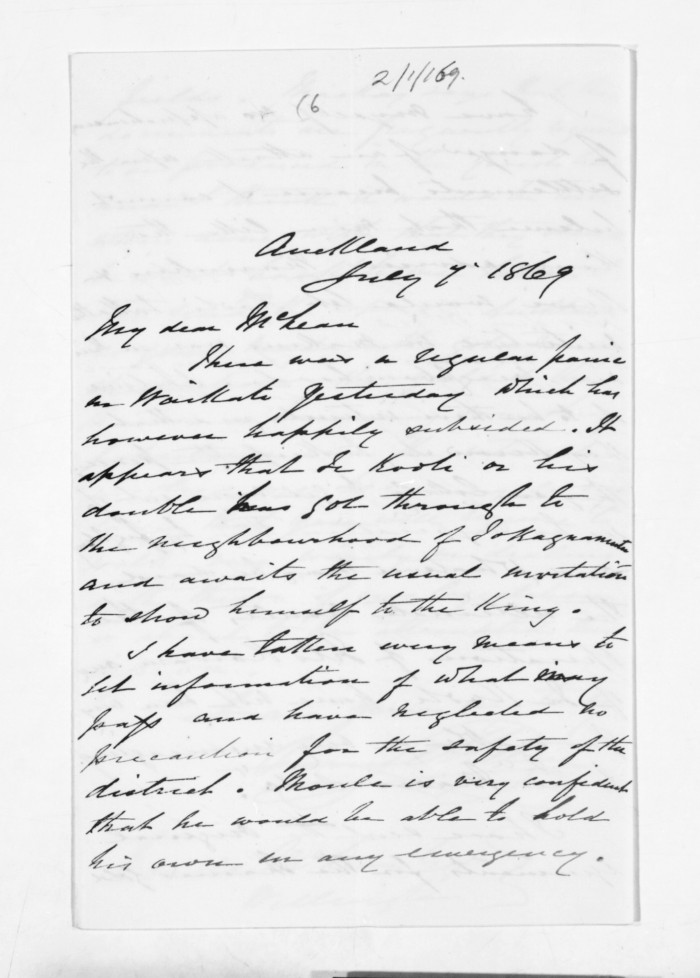 2/1/69.
(6
Auckland
July 7 1869
My dear McLean
There was a regular panic
in Waikato yesterday which has
however happily subsided. It
appears that Te Kooti or his
double has got through to
the neighbourhood of Tokagnamutu
and awaits the usual invitation
to show himself to the King.
I have taken every means to
get information of what may
pass and have neglected no
precaution for the safety of the
district. Moule is very confident
that he would be able to hold
his own in any emergency.